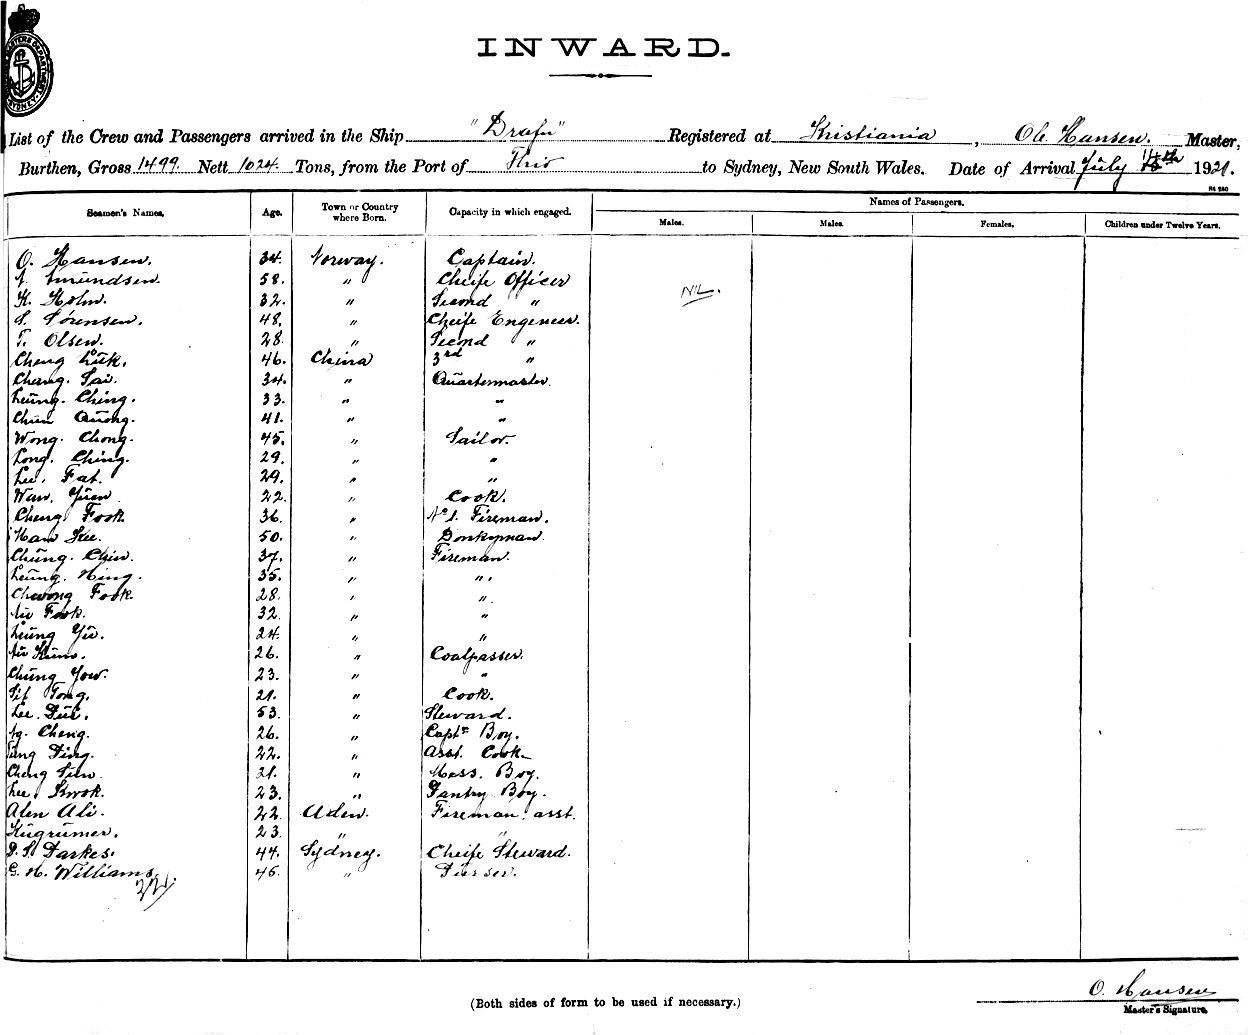 INWARD.
List of the Crew and Passengers arrived in the Ship "Drafn" Registered at Kristiania, Ole Hansen. Master,
Burthen, Gross 1499. Nett 1024. Tons, from the Port of to Sydney, New South Wales. Date of Arrival July 1921.
Seamen's Names. Age. Town or Country where Born. Capacity in which engaged. Names of Passengers.
Males. Males. Females. Children under Twelve Years.
O. Hansen. 34. Norway. Captain.
A. Amundsen. 58. " Cheife Officer
K. Holm. 32. " Second "
NIL.
S. Sørensen. 48. " Cheife Engeneer.
T. Olsen. 28. " Second "
Cheng Luk. 46. China 3rd "
Chang. Sai. 34. " Quartermaster.
Leung. Ching. 33. " "
Chun Quong. 41. " "
Wong. Chong. 45. " Sailor.
Long. Ching. 29. " "
Lee. Fat. 29. " "
Wan. Yuen 22. " Cook.
Cheng Fook 36. " No 1. Fireman.
Han See. 50. " Donkyman.
Chung. Chin. 37. " Fireman.
Leung. Hing. 35. " "
Cheong Fook. 28. " "
Au Fook. 32. " "
Leung Yu. 24. " "
Au Kum. 26. " Coalpasser.
Chung Yow. 23. " "
Sit Tong. 21. " Cook.
Lee. 53. " Steward.
Ng. Cheng. 26. " Captn Boy.
Ting. 22. " Asst. Cook
Cheng 21. " Mess. Boy.
Lee. Kwok. 23. " Pantry Boy.
Alen Ali. 22. Aden. Fireman. asst.
Kugrumer. 23. " "
Parkes. 44. Sydney. Cheife Steward.
G. H. Williams. 45. " Purser.
(Both sides of form to be used if necessary.)
O. Hansen
Master's Signature.